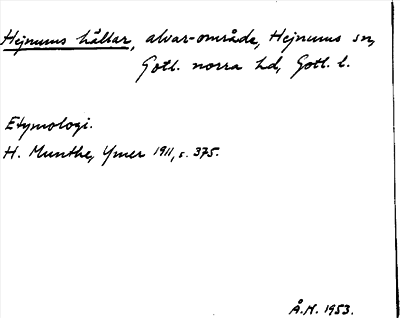 Hejnums hällar, alvar-område, Hejnums sn,
Gotl. norra hd, Gotl. l.
Etymologi.
H. Munthe, Ymer 1911, s. 375.
Å.H. 1953.